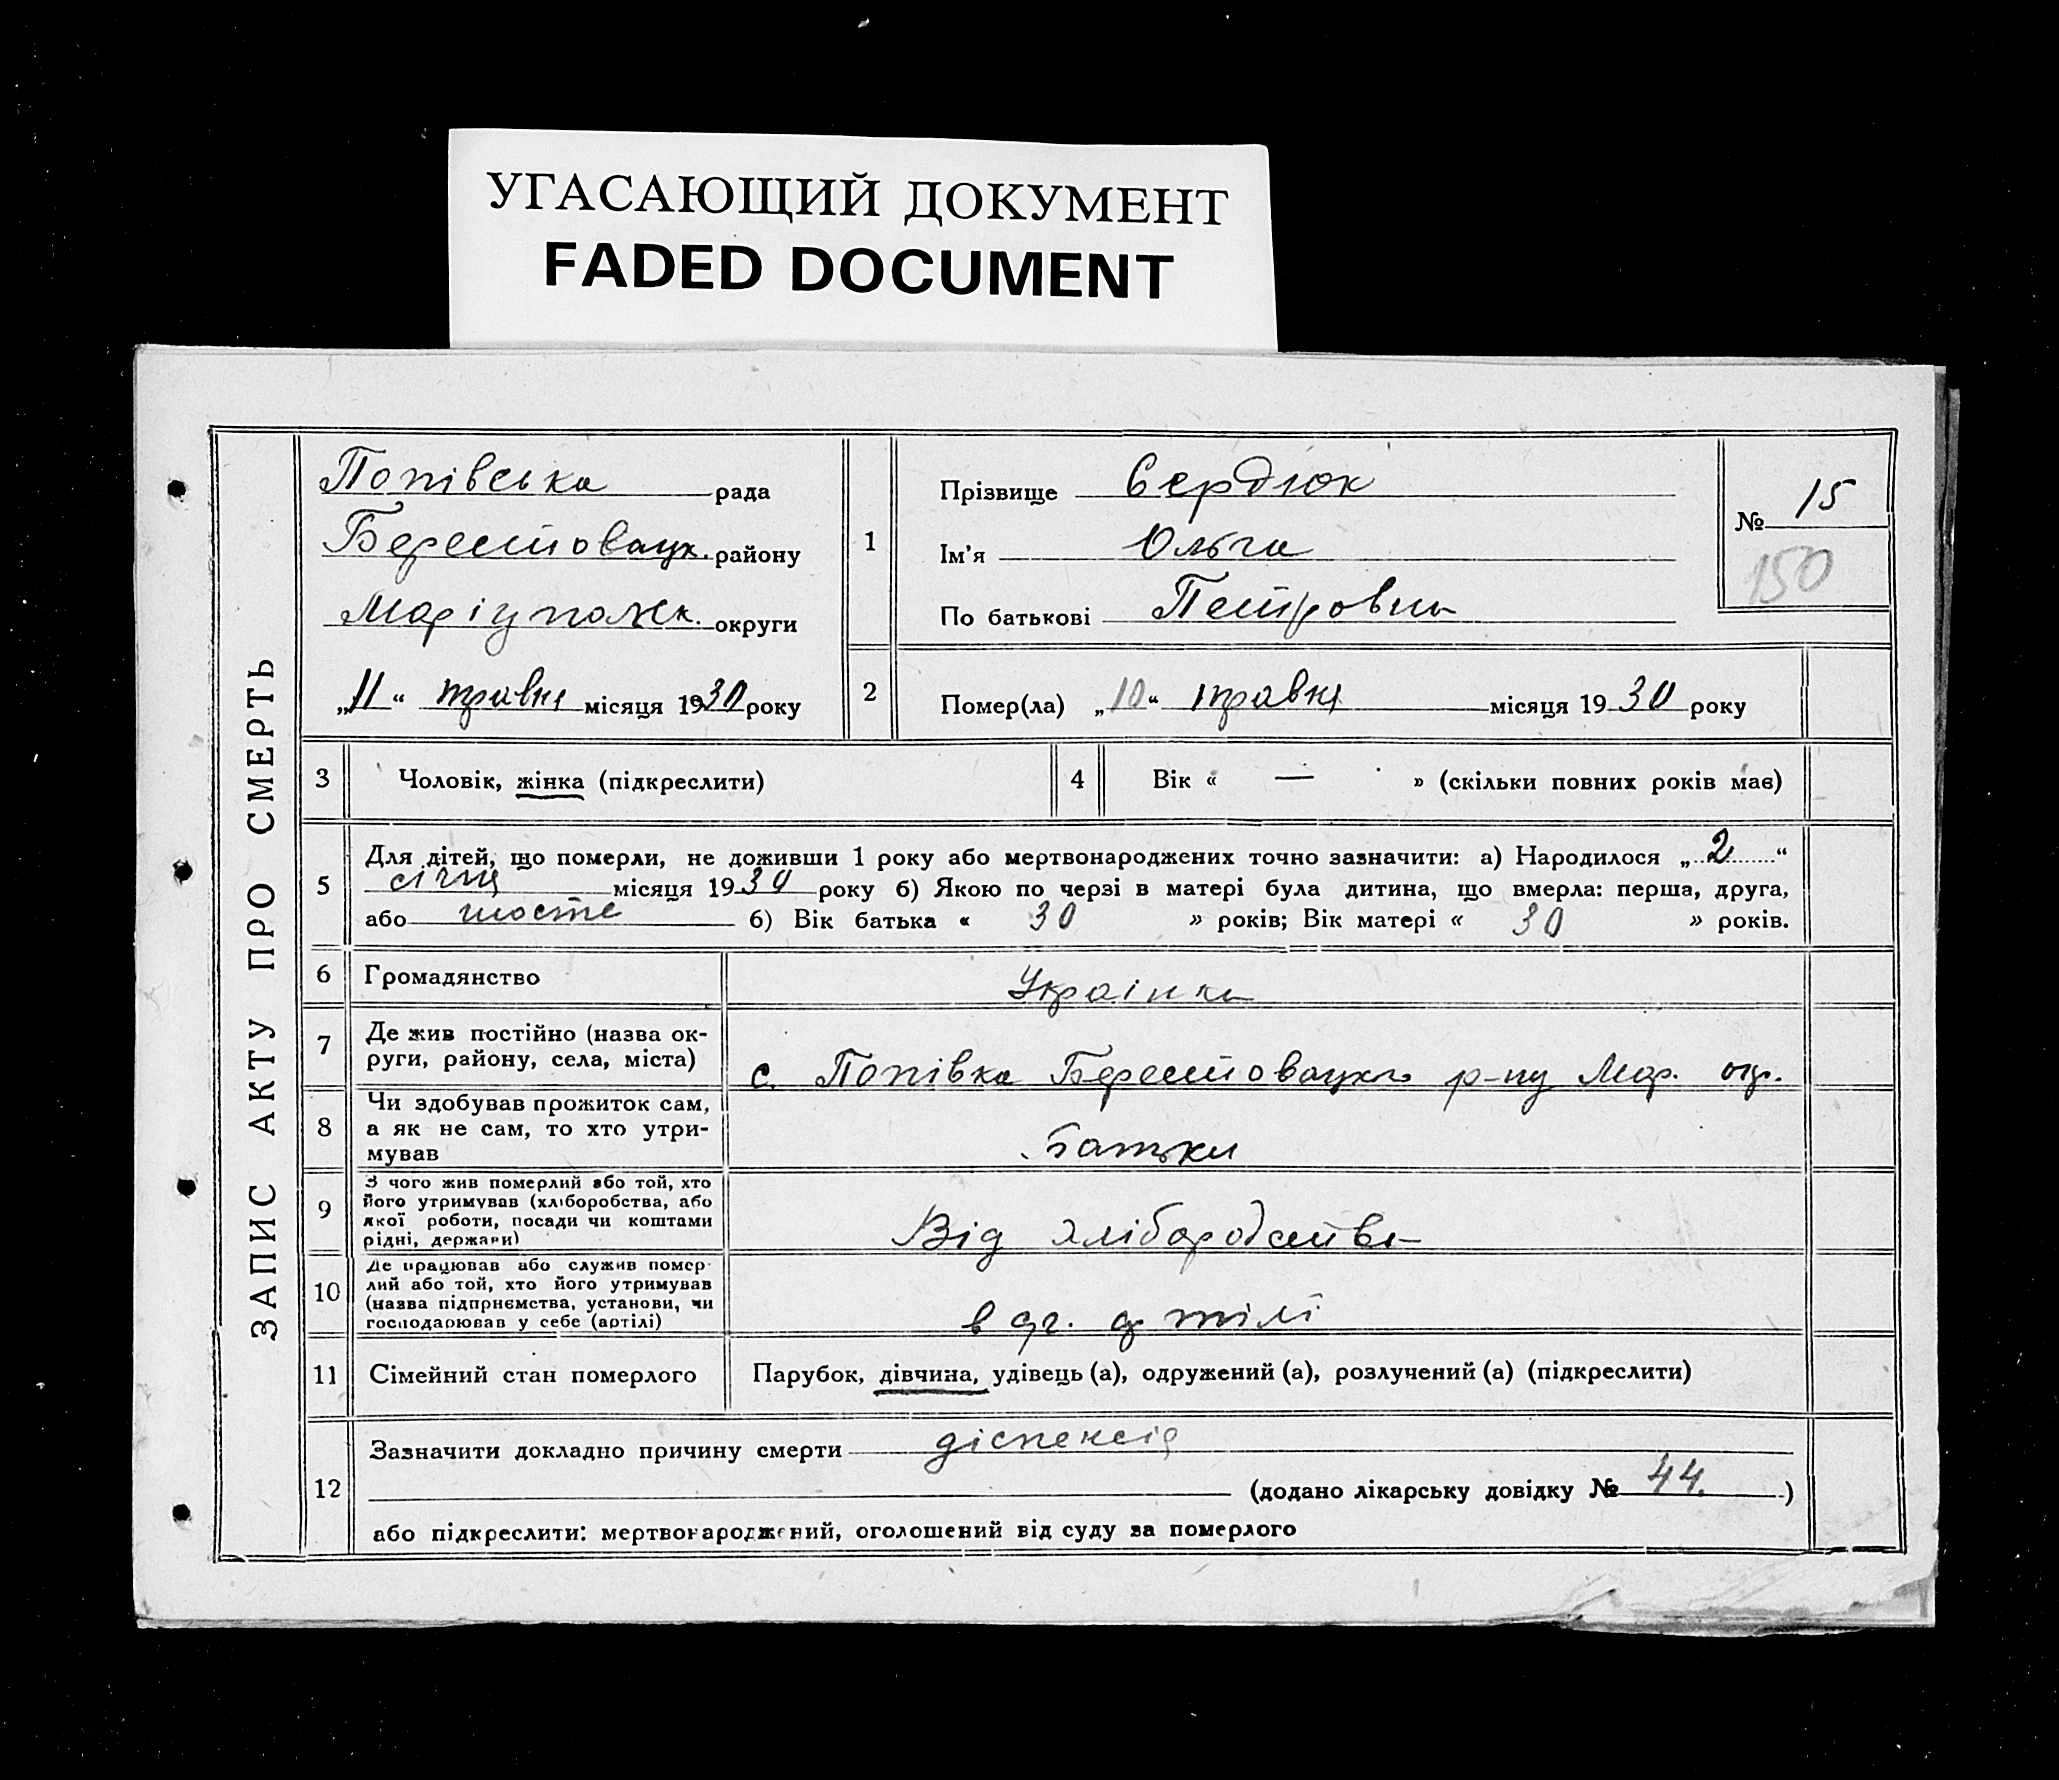 УГАСАЮЩИЙ ДОКУМЕНТ
FADED DOCUMENT
ЗАПИС АКТУ ПРО СМЕРТЬ
Попівська рада
Берестовацк. району
Маріупольск. округи
„11“ травня місяця 1930 року
1
Прізвище Сердюк
Ім'я Ольга
По батькові Петровна
№ 15
150
2
Помер(ла) „10“ травня місяця 1930 року
3
Чоловік, жінка (підкреслити)
4
Вік « — » (скільки повних років має)
5
Для дітей, що померли, не доживши 1 року або мертвонароджених точно зазначити: а) Народилося „2“
січня місяця 1930 року б) Якою по черзі в матері була дитина, що вмерла: перша, друга,
або шосте б) Вік батька « 30 » років; Вік матері « 30 » років.
6
Громадянство
Українка
7
Де жив постійно (назва ок-
руги, району, села, міста)
с. Попівка Берестовацкого р-ну Мар. окр.
8
Чи здобував прожиток сам,
а як не сам, то хто утри-
мував
Батьки
9
З чого жив померлий або той, хто
його утримував (хліборобства, або
якої роботи, посади чи коштами
рідні, держави)
Від хліборобства
10
Де працював або служив помер-
лий або той, хто його утримував
(назва підприємства, установи, чи
господарював у себе (артілі)
в артілі
11
Сімейний стан померлого
Парубок, дівчина, удівець (а), одружений (а), розлучений (а) (підкреслити)
12
Зазначити докладно причину смерти діспенсія
(додано лікарську довідку № 44.)
або підкреслити: мертвонароджений, оголошений від суду за померлого